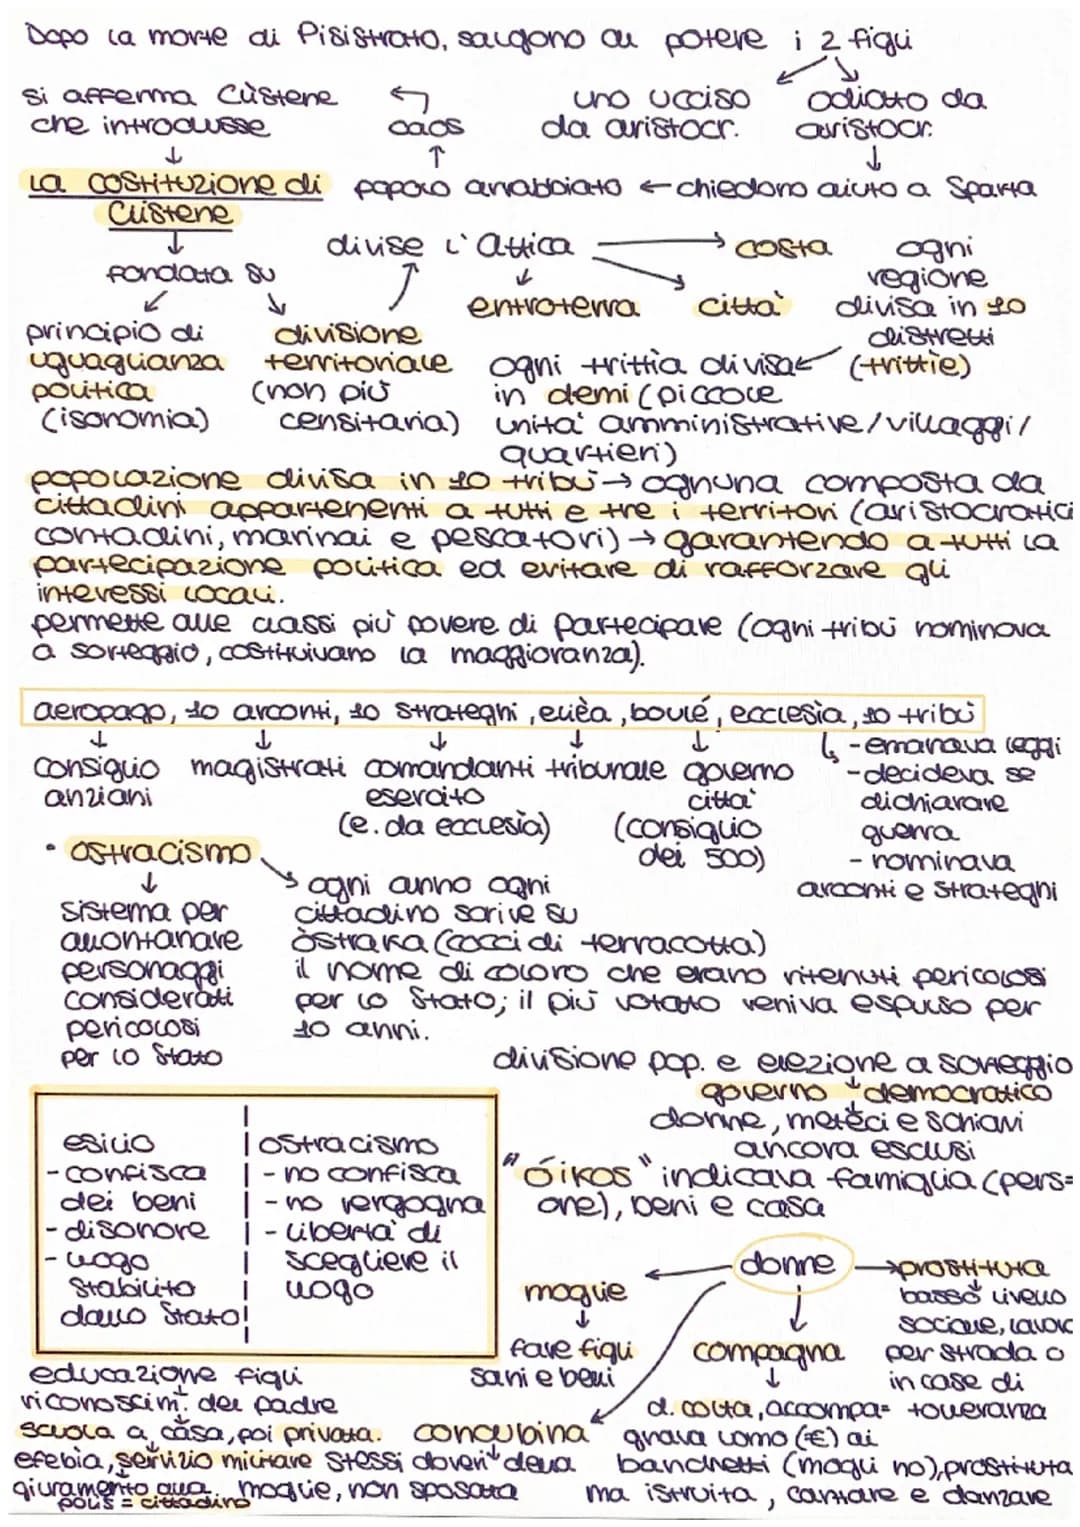 Dopo la morte di Pisistrato, salgono al potere i 2 figli
uno ucciso
da aristocr.
odiato da
aristocr.
chiedono aiuto a Sparta
popolo arrabbiato
caos
si afferma Clistene
che introdusse
La costituzione di
Clistene
fondata su
principio di
uguaglianza
politica
(isonomia)
divisione
territoriale
(non più
censitaria)
divise l'Attica
costa
entroterra
città
ogni
regione
divisa in 10
distretti
(trittìe)
ogni trittìa divisa
in demi (piccole
unità amministrative/villaggi/
quartieri)
popolazione divisa in 10 tribù → ognuna composta da
cittadini appartenenti a tutti e tre i territori (aristocratici
contadini, marinai e pescatori) → garantendo a tutti la
partecipazione politica ed evitare di rafforzare gli
interessi locali.
permette alle classi più povere di partecipare (ogni tribù nominava
a sorteggio, costituivano la maggioranza).
aeropago, 10 arconti, 10 strateghi, elièa, boulé, ecclesìa, 10 tribù
consiglio
anziani
magistrati
comandanti
esercito
(e. da ecclesìa)
tribunale
governo
città
(consiglio
dei 500)
- emanava leggi
- decideva se
dichiarare
guerra
- nominava
arconti e strateghi
• ostracismo
sistema per
allontanare
personaggi
considerati
pericolosi
per lo Stato
ogni anno ogni
cittadino scrive su
òstraka (cocci di terracotta)
il nome di coloro che erano ritenuti pericolosi
per lo Stato; il più votato veniva espulso per
10 anni.
divisione pop. e elezione a sorteggio
governo democratico
donne, metèci e schiavi
ancora esclusi
esilio
- confisca
dei beni
- disonore
- luogo
stabilito
dallo Stato
ostracismo
- no confisca
- no vergogna
- libertà di
scegliere il
luogo
"óikos" indicava famiglia (pers=
one), beni e casa
donne
moglie
fare figli
sani e belli
compagna
d. colta, accompa=
gnava uomo (€) ai
banchetti (mogli no), prostituta
ma istruita, cantare e danzare
prostituta
basso livello
sociale, lavoro
per strada o
in case di
tolleranza
concubina
stessi doveri della
moglie, non sposata
educazione figli
riconoscim. del padre
scuola a casa, poi privata.
efebìa, servizio militare
giuramento alla
polis = cittadino